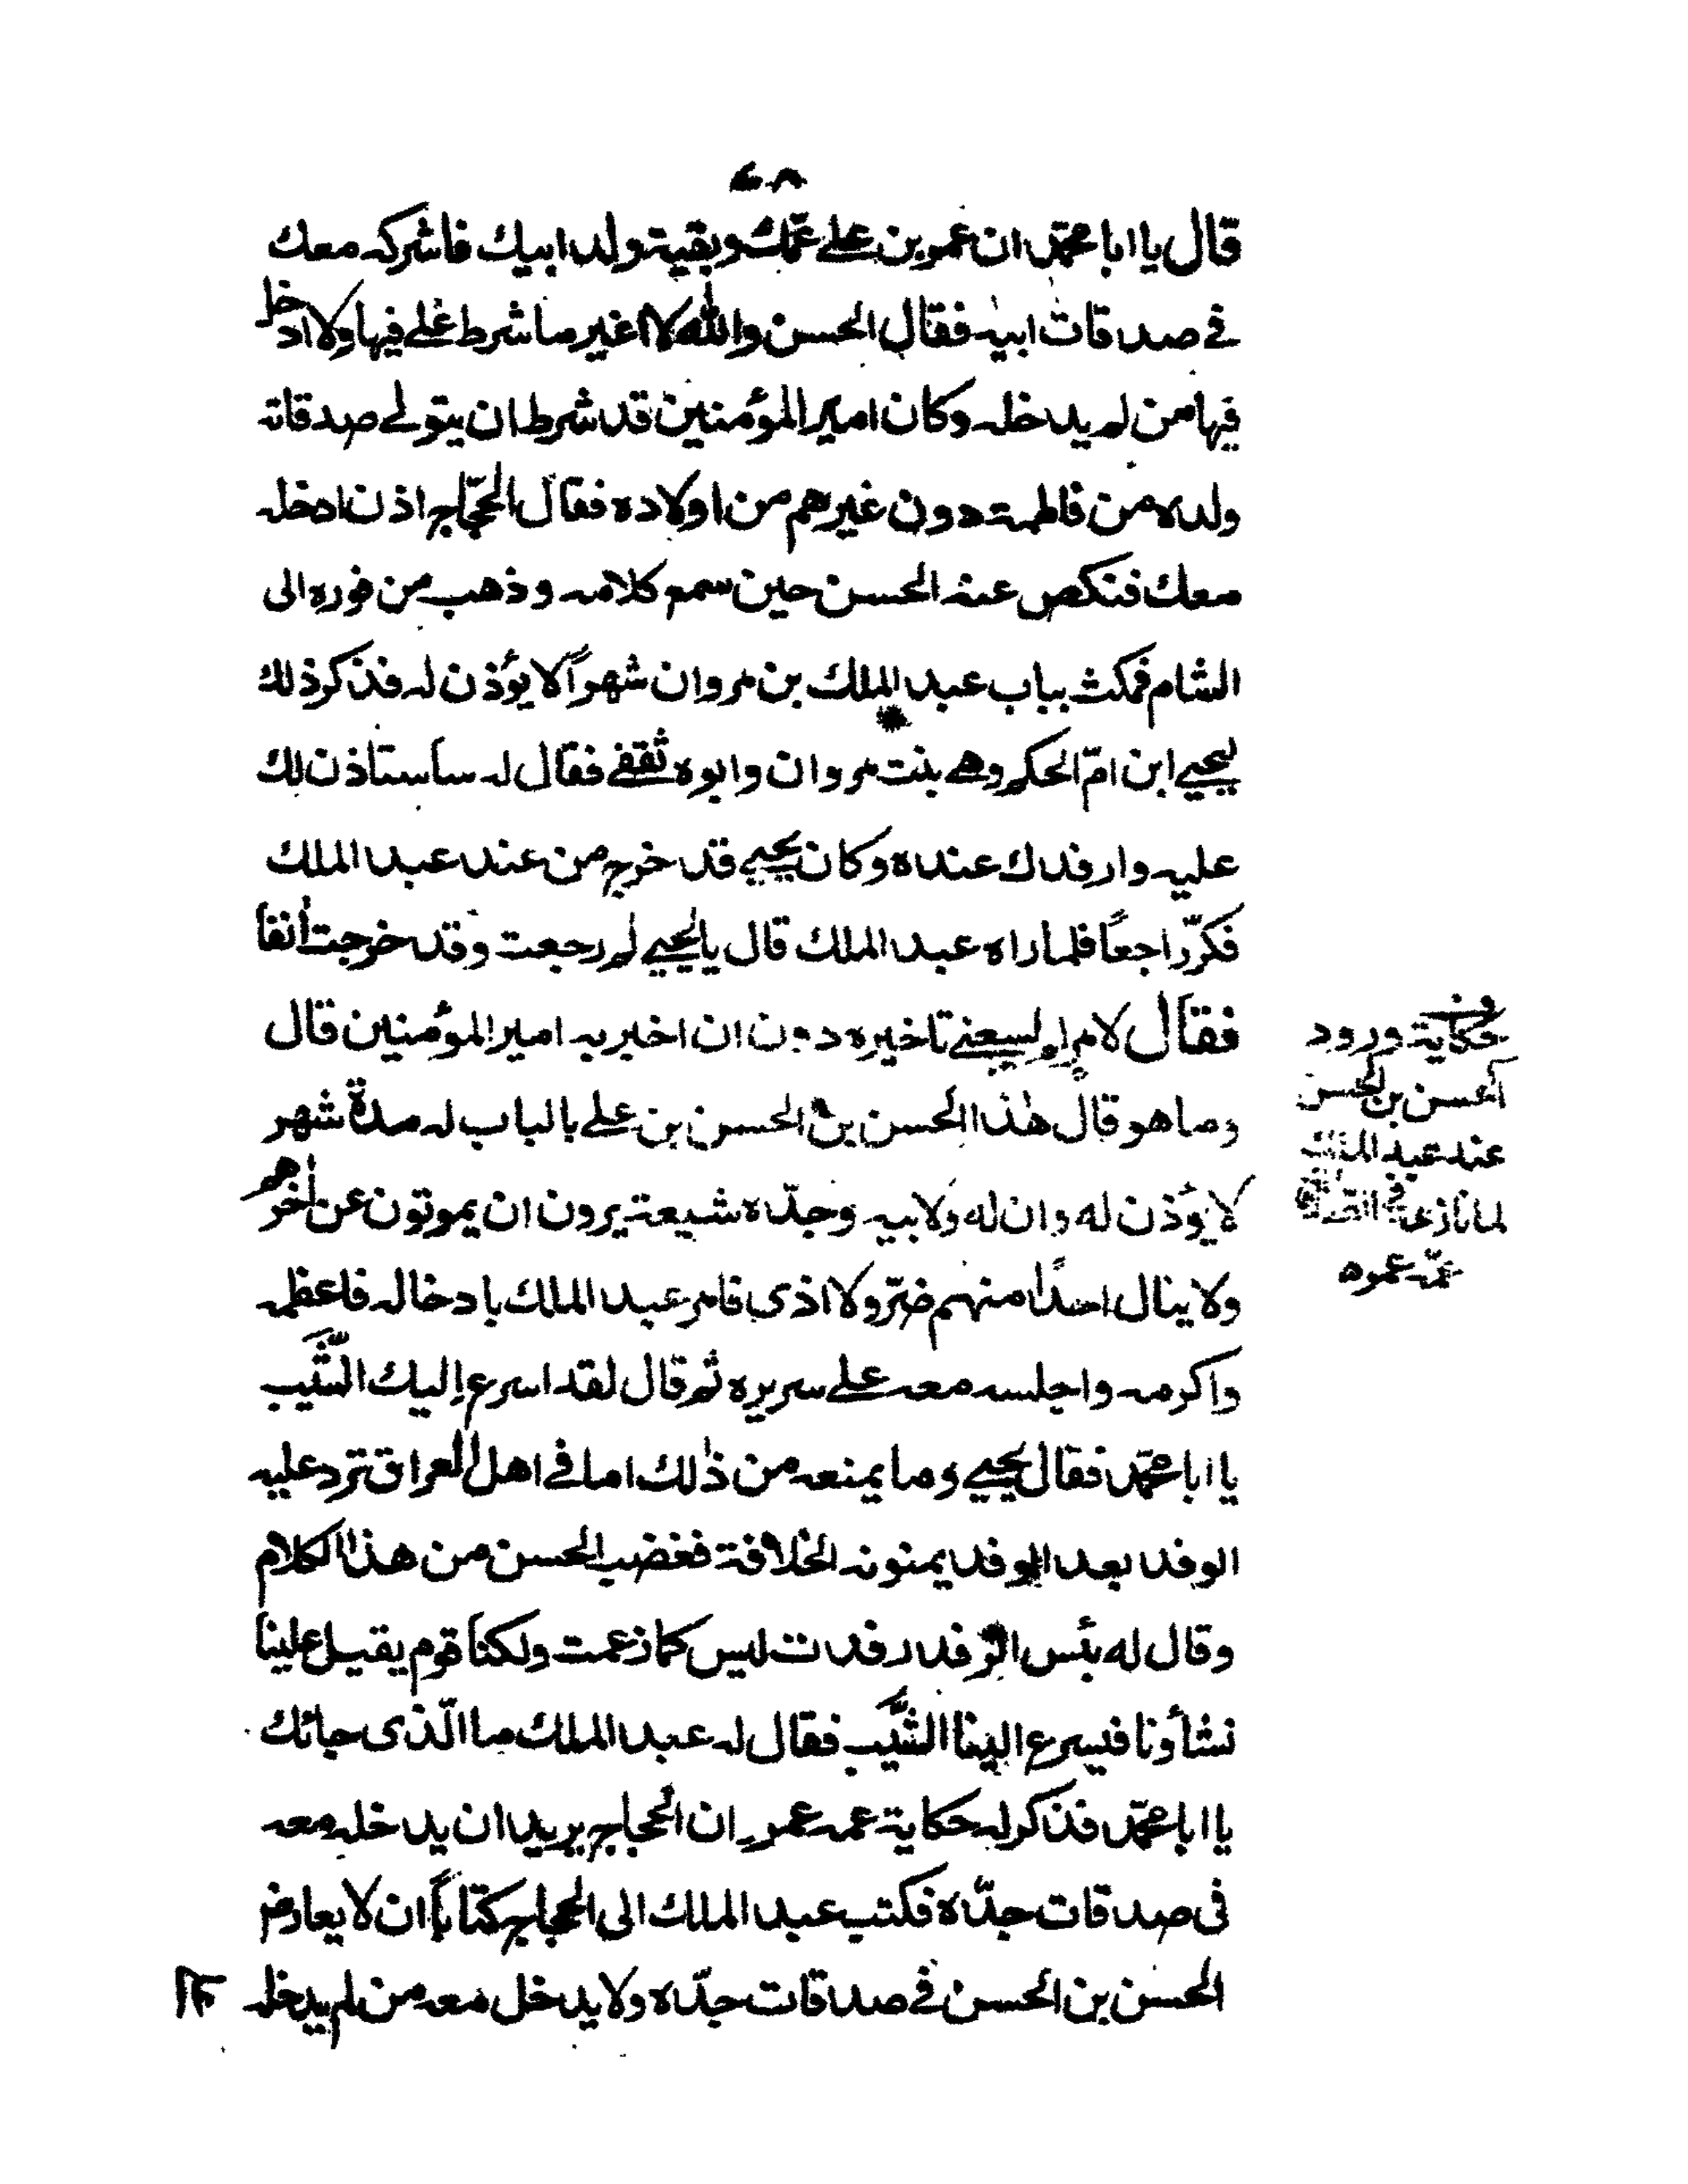 ٦٨
قال يا ابا محمّد ان عمر بن علي عمّك وبقية ولد ابيك فاشركه معك
في صدقات ابيه فقال الحسن والله لا اغير ما شرط علي فيها ولا ادخل
فيها من لم يدخله وكان امير المؤمنين قد شرط ان يتولى صدقاته
ولده من فاطمة دون غيرهم من اولاده فقال الحجّاج اذن ادخله
معك فنكص عنه الحسن حين سمع كلامه وذهب من فوره الى
الشام فمكث بباب عبد الملك بن مروان شهراً لا يؤذن له فذكر ذلك
ليحيى ابن امّ الحكم وهي بنت مروان وابوه ثقفي فقال له ساستاذن لك
عليه وارفدك عنده وكان يحيى قد خرج من عند عبد الملك
فكرّ راجعاً فلما راه عبد الملك قال يا يحيى لم رجعت وقد خرجت انفا
فقال لامر لم يسعني تاخيره دون ان اخبر به امير المؤمنين قال
وما هو قال هذا الحسن بن الحسن بن علي بالباب له مدة شهر
لا يؤذن له وان له ولابيه وجدّه شيعة يرون ان يموتون عن اخرهم
ولا ينال احداً منهم ضرّ ولا اذى فامر عبد الملك بادخاله فاعظمه
واكرمه واجلسه معه على سريره ثم قال لقد اسرع اليك الشّيب
يا ابا محمّد فقال يحيى وما يمنعه من ذلك اماني اهل العراق ترد عليه
الوفد بعد الوفد يمنونه الخلافة فغضب الحسن من هذا الكلام
وقال له بئس الرفد رفدت ليس كما زعمت ولكنا قوم يقيل علينا
نشاؤنا فيسرع الينا الشّيب فقال له عبد الملك ما الّذى جائك
يا ابا محمّد فذكر له حكاية عمه عمر وان الحجاج يريد ان يدخله معه
فى صدقات جدّه فكتب عبد الملك الى الحجاج كتاباً ان لا يعارض
الحسن بن الحسن في صدقات جدّه ولا يدخل معه من لم يدخله
حكاية ورود
الحسن بن الحسن
عند عبد الملك
لما نازعه في
عمّه عمر